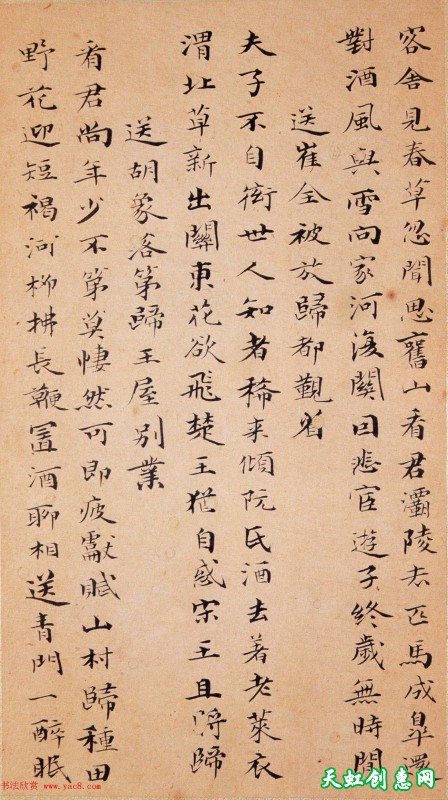 客舍見春草忽聞思舊山看君灞陵去匹馬成皋還
對酒風與雪向家河復關因悲宦遊子終歲無時閒
送崔全被放歸都覲省
夫子不自衒世人知者稀来傾阮氏酒去著老萊衣
渭北草新出關東花欲飛楚王猶自惑宋王且將歸
送胡象落第歸王屋別業
看君尚年少不第莫悽然可即疲獻賦山村歸種田
野花迎短褐河柳拂長鞭置酒聊相送青門一醉眠
书法欣赏 www.yac8.com
天虹创意惠网